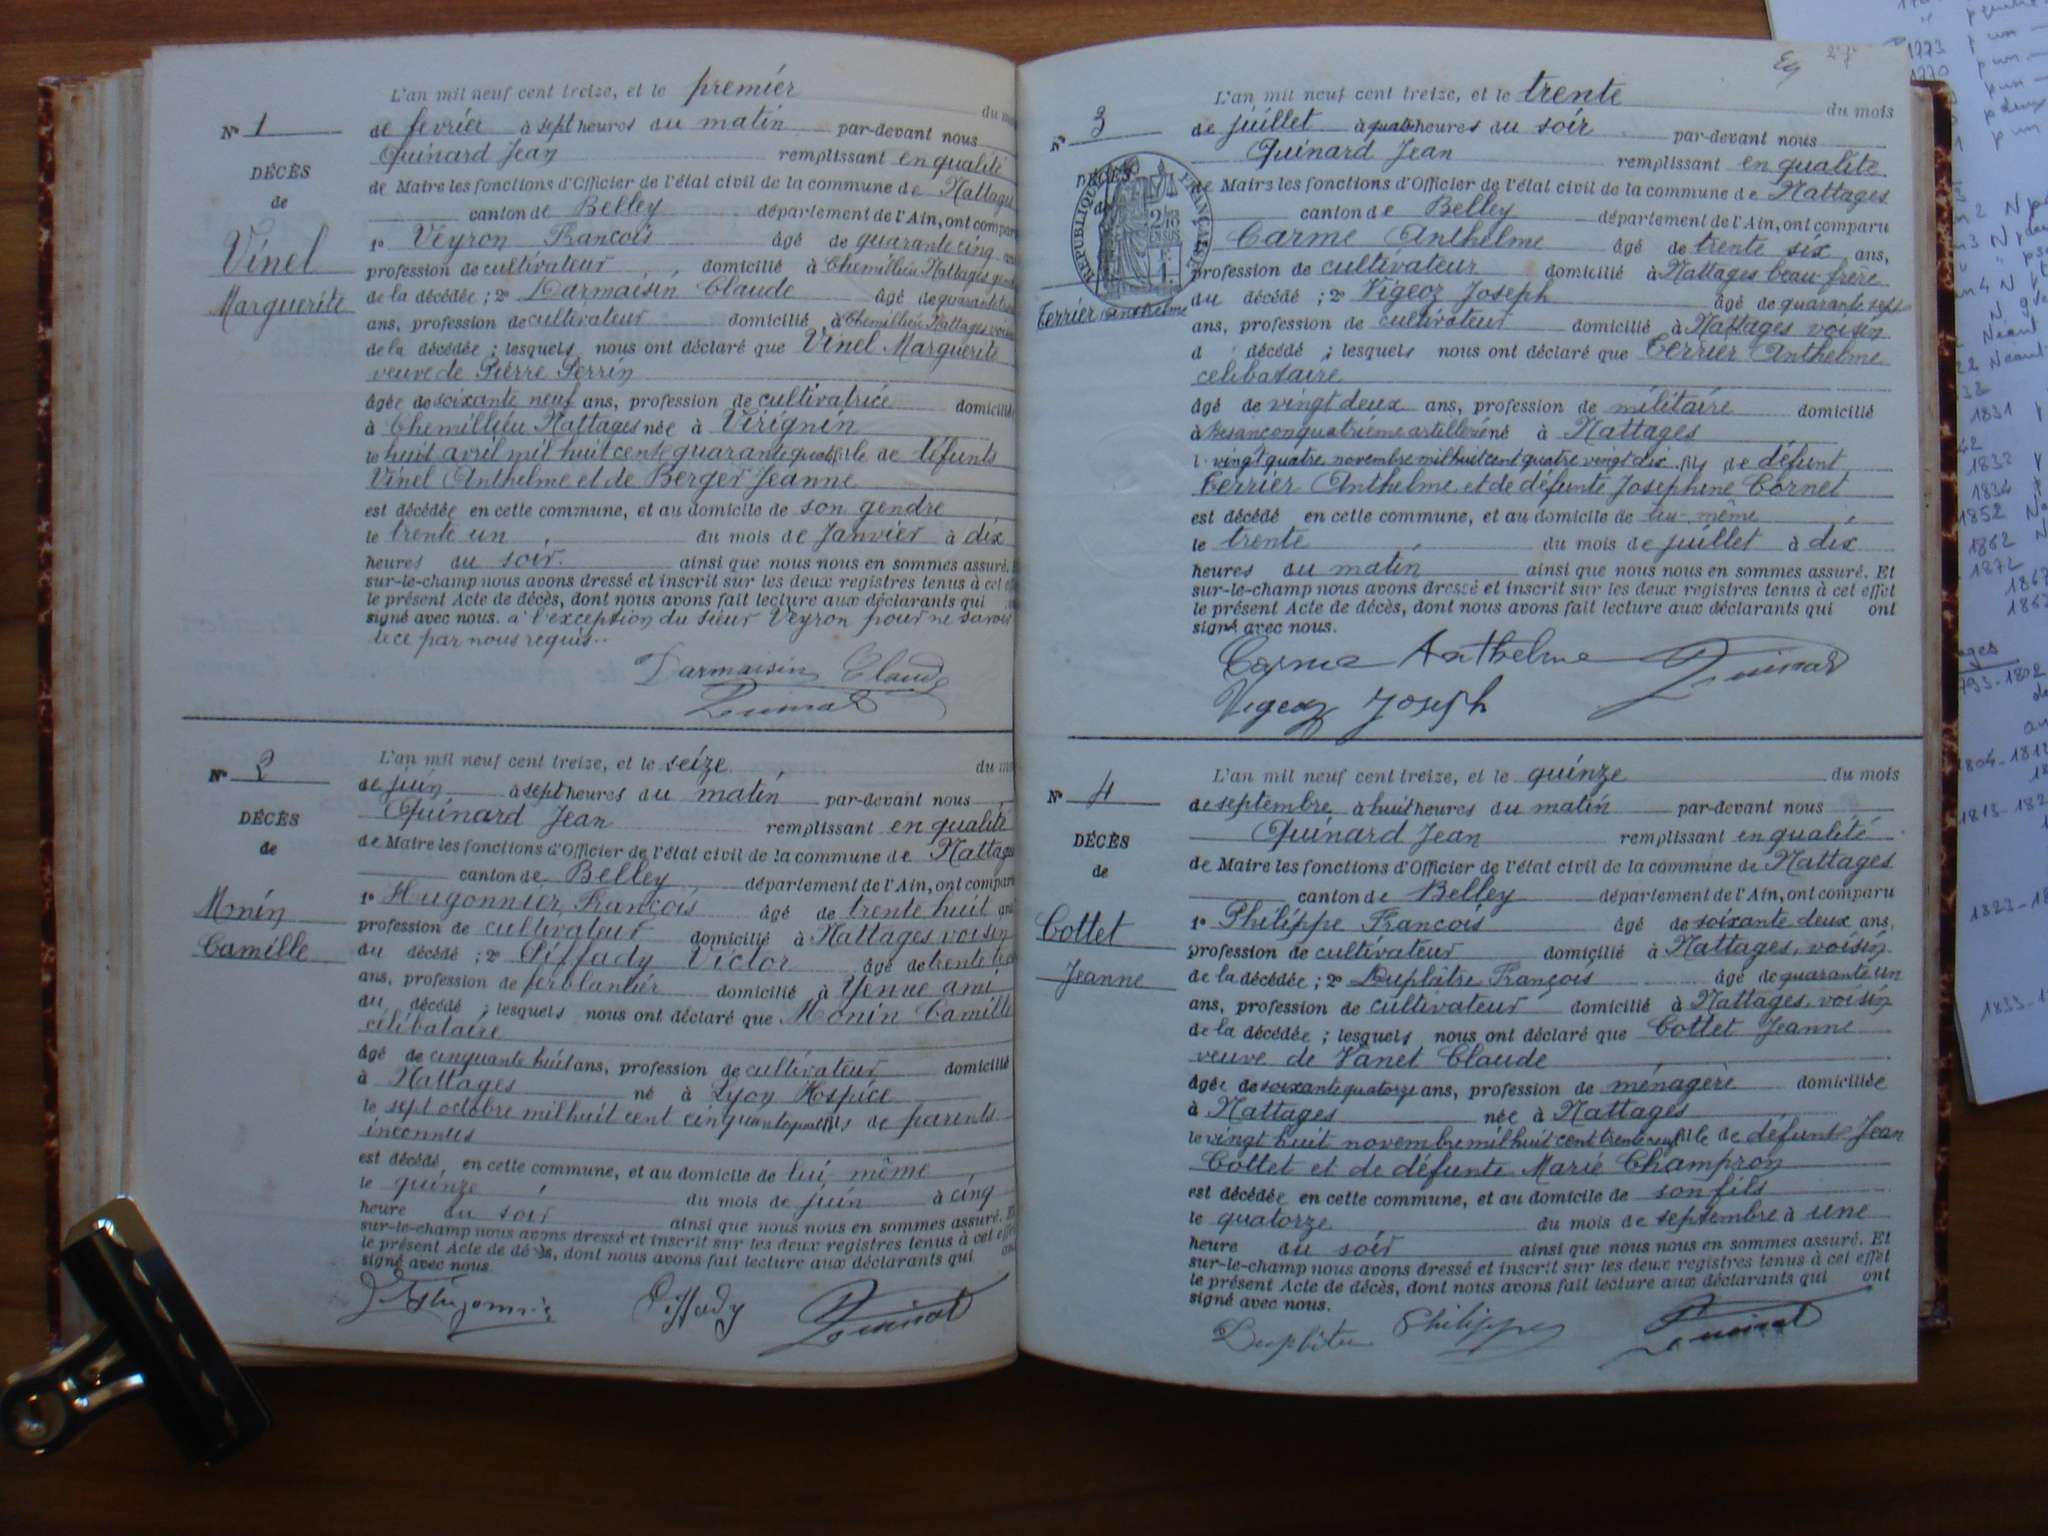 L'an mil neuf cent treize, et le premier
du
N° 1
de fevrier à sept heures du matin par-devant nous
Quinard Jean remplissant en qualité
DÉCÈS
de Maire les fonctions d'Officier de l'état civil de la commune de Nattages
de
canton de Belley département de l'Ain, ont comparu
Vinel
1° Veyron François âgé de quarante cinq ans
profession de cultivateur domicilié à Chemillieu Nattages gendre
Marguerite
de la décédée ; 2° Darmaisin Claude âgé de
ans, profession de cultivateur domicilié à Chemillieu Nattages voisin
de la décédée ; lesquels nous ont déclaré que Vinel Marguerite
veuve de Pierre Perrin
âgée de soixante neuf ans, profession de cultivatrice domiciliée
à Chemillieu Nattages née à Virignin
le huit avril mil huit cent quarante quatre fille de défunts
Vinel Anthelme et de Berger Jeanne
est décédée en cette commune, et au domicile de son gendre
le trente un du mois de Janvier à dix
heures du soir. ainsi que nous nous en sommes assuré. Et
sur-le-champ nous avons dressé et inscrit sur les deux registres tenus à cet effet
le présent Acte de décès, dont nous avons fait lecture aux déclarants qui
signé avec nous. à l'exception du sieur Veyron pour ne savoir
de ce par nous requis.
Darmaisin Claude
Quinard
L'an mil neuf cent treize, et le seize du
N° 2
de juin à sept heures du matin par-devant nous
Quinard Jean remplissant en qualité
DÉCÈS
de Maire les fonctions d'Officier de l'état civil de la commune de Nattages
de
canton de Belley département de l'Ain, ont comparu
Monin
1° Hugonnier François âgé de trente huit ans
profession de cultivateur domicilié à Nattages voisin
Camille
du décédé ; 2° Piffady Victor âgé de trente
ans, profession de ferblantier domicilié à Yenne ami
du décédé ; lesquels nous ont déclaré que Monin Camille
célibataire
âgé de cinquante huit ans, profession de cultivateur domicilié
à Nattages né à Lyon Hospice
le sept octobre mil huit cent cinquante quatre fils de parents
inconnus
est décédé en cette commune, et au domicile de lui même
le quinze du mois de juin à cinq
heure du soir ainsi que nous nous en sommes assuré. Et
sur-le-champ nous avons dressé et inscrit sur les deux registres tenus à cet effet
le présent Acte de décès, dont nous avons fait lecture aux déclarants qui ont
signé avec nous
Hugonnier Piffady Quinard
27
L'an mil neuf cent treize, et le trente du mois
N° 3
de juillet à quatre heures du soir par-devant nous
Quinard Jean remplissant en qualité
DÉCÈS
de
RÉPUBLIQUE FRANÇAISE
de Maire les fonctions d'Officier de l'état civil de la commune de Nattages
canton de Belley département de l'Ain, ont comparu
Carme Anthelme âgé de trente six ans,
profession de cultivateur domicilié à Nattages beau frère
Terrier Anthelme
du décédé ; 2° Vigeoz Joseph âgé de quarante sept
ans, profession de cultivateur domicilié à Nattages voisin
d décédé ; lesquels nous ont déclaré que Terrier Anthelme
celibataire
âgé de vingt deux ans, profession de militaire domicilié
à Besançon quatrieme artillerie né à Nattages
l vingt quatre novembre mil huit cent quatre vingt dix fils de défunt
Terrier Anthelme et de défunte Josephine Cornet
est décédé en cette commune, et au domicile de lui-même
le trente du mois de juillet à dix
heures du matin ainsi que nous nous en sommes assuré. Et
sur-le-champ nous avons dressé et inscrit sur les deux registres tenus à cet effet
le présent Acte de décès, dont nous avons fait lecture aux déclarants qui ont
signé avec nous.
Carme Anthelme Quinard
Vigeoz Joseph
L'an mil neuf cent treize, et le quinze du mois
N° 4
de septembre à huit heures du matin par-devant nous
Quinard Jean remplissant en qualité
DÉCÈS
de Maire les fonctions d'Officier de l'état civil de la commune de Nattages
de
canton de Belley département de l'Ain, ont comparu
Cottet
1° Philippe François âgé de soixante deux ans,
profession de cultivateur domicilié à Nattages, voisin
Jeanne
de la décédée ; 2° Duplâtre François âgé de quarante un
ans, profession de cultivateur domicilié à Nattages, voisin
de la décédée ; lesquels nous ont déclaré que Cottet Jeanne
veuve de Vanet Claude
âgée de soixante quatorze ans, profession de ménagère domiciliée
à Nattages née à Nattages
le vingt huit novembre mil huit cent trente neuf fille de défunt Jean
Cottet et de défunte Marie Champron
est décédée en cette commune, et au domicile de son fils
le quatorze du mois de septembre à une
heure du soir ainsi que nous nous en sommes assuré. Et
sur-le-champ nous avons dressé et inscrit sur les deux registres tenus à cet effet
le présent Acte de décès, dont nous avons fait lecture aux déclarants qui ont
signé avec nous.
Philippe Quinard
1273
1270
1831
1832
1834
1852
1862
1872
1804-1812